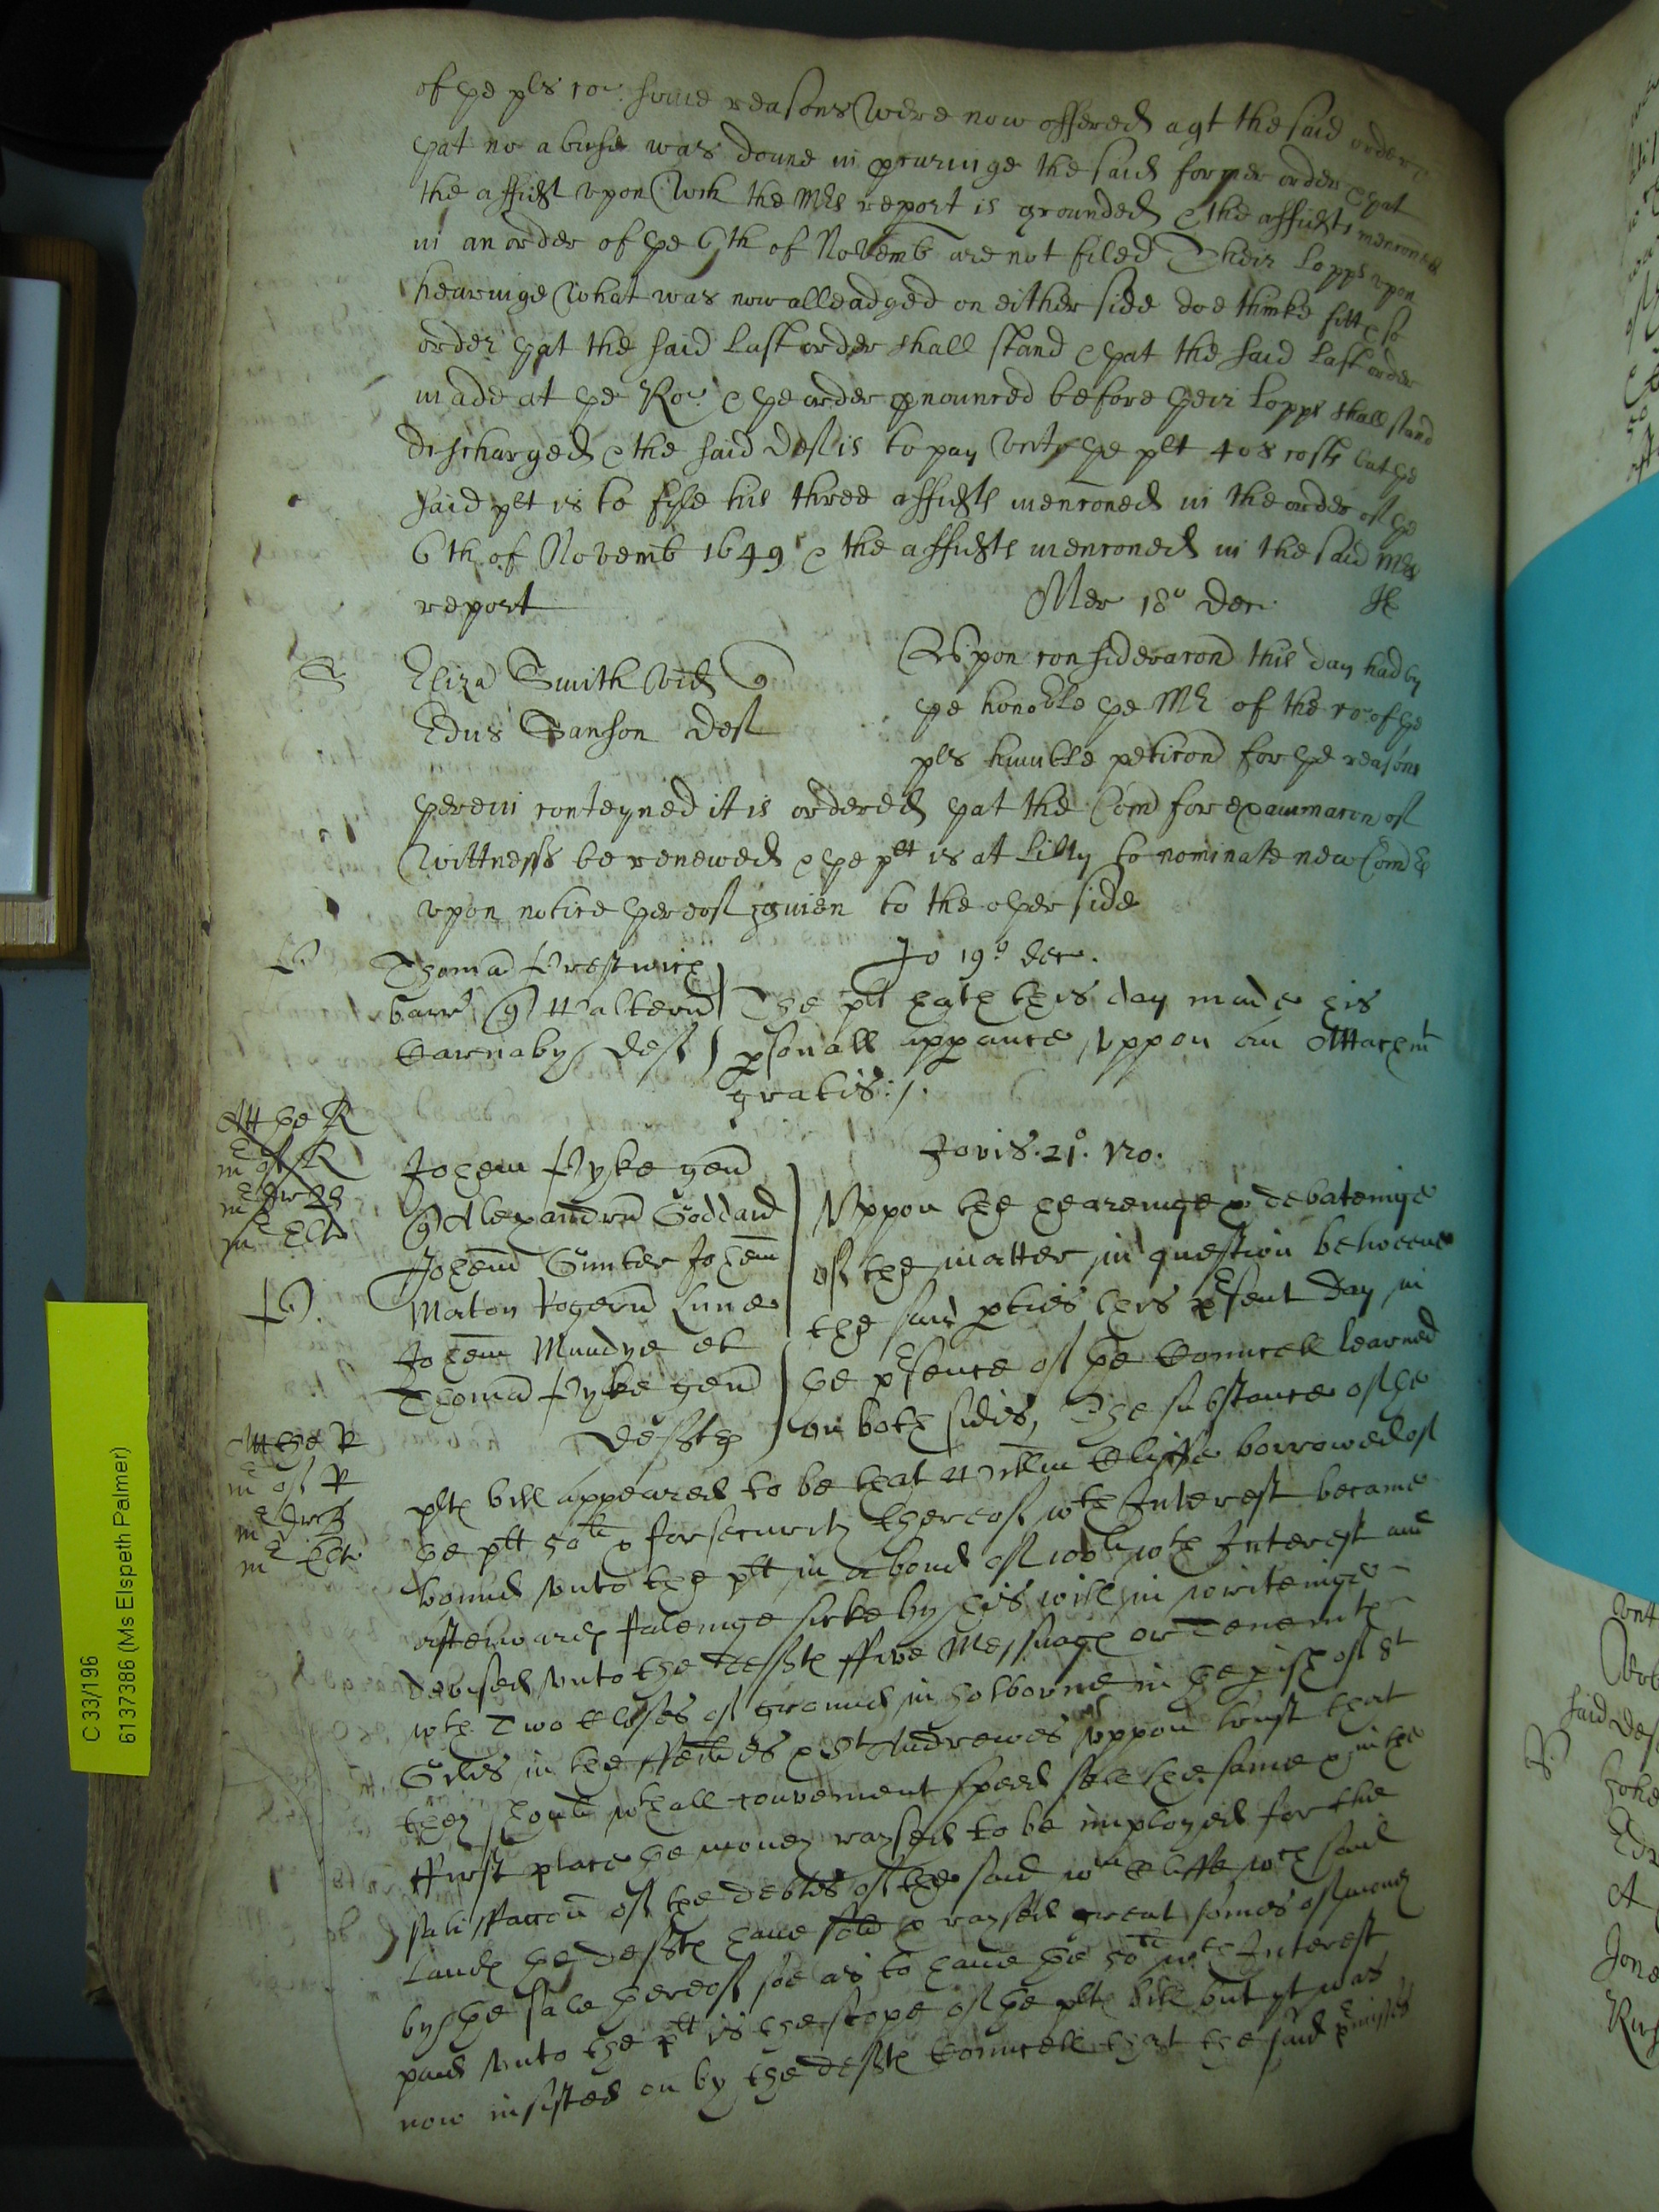 of ye pls co: some reasons were now offered agt the said order &
yat no abuse was donne in pcuringe the said former order & yat
the affidt vpon wch the Mrs report is grounded & the affidts menconed
in an order of ye 6th of Novemb are not filed Their Lopps vpon
hearinge what was now alleadged on either side doe thinke fitt & so
order yat the said last order shall stand & yat the said last order
made at ye Ro: & ye order pnounced before yeir Lopps shall stand
discharged & the said Deft is to pay vnto ye plt 40s costs but ye
said plt is to fyle his three affidts menconed in the order of ye
6th of Novemb 1649 & the affidts menconed in the said Mrs
report
Mer 18o Dec.
S
Eliza Smith vid q
Edus Sanson Deft
Vpon consideracon this day had by
ye honoble ye Mr of the ro: of ye
pls humble peticon for ye reasons
yerein conteyned it is ordered yat the Com for examinacon of
wittnesss be renewed & ye plt is at libty to nominate new Comrs
vpon notice yereof giuen to the oyer side
P
Jo 19o dec.
Thoma Prestwich
barr q Walteru
Carnaby deft
The plt hath this day made his
psonall appance vppon an Attachmt
gratis:/.
Att ye R
mr of R
mr
mr
Jovis. 21o. No.
P.
Johem Pyke gen
q Alexandru Goddard
Johem Gunter Johem
Maton Rogeru Lune
Johem Mundye et
Thoma Pyke gen
defts
Vppon the hearinge & debateinge
of the matter in question betweene
the said pties this psent day in
ye psence of ye Councell learned
on both sides, The substance of ye
Att the R
mr of R
mr
mr
plts bill appeared to be that Willm Cliffe borrowed of
ye plt 50li & for security thereof wth Interest became
bound vnto the plt in a bond of 100li wth Interest and
afterwards faleinge sicke by his will in writeinge
devised vnto the defts ffive Messuages or Tenemts
wth Two Closes of ground in Holborne in ye pish of St
Giles in the ffeildes & St Andrewes vppon trust that
they should wth all convenient speed sell the same & in the
ffirst place ye money raysed to be imployed for the
satisffaccon of the debtes of the said Wm Cliffe wch said
Lands ye defts haue sold & raysed great somes of money
by ye sale yereof soe as to haue ye 50li wth Interest
paid vnto the plt is the scope of ye plts bill but yt was
now insisted on by the defts Councell that the said pmisses
C 33/196
6137386 (Ms Elspeth Palmer)
said Def